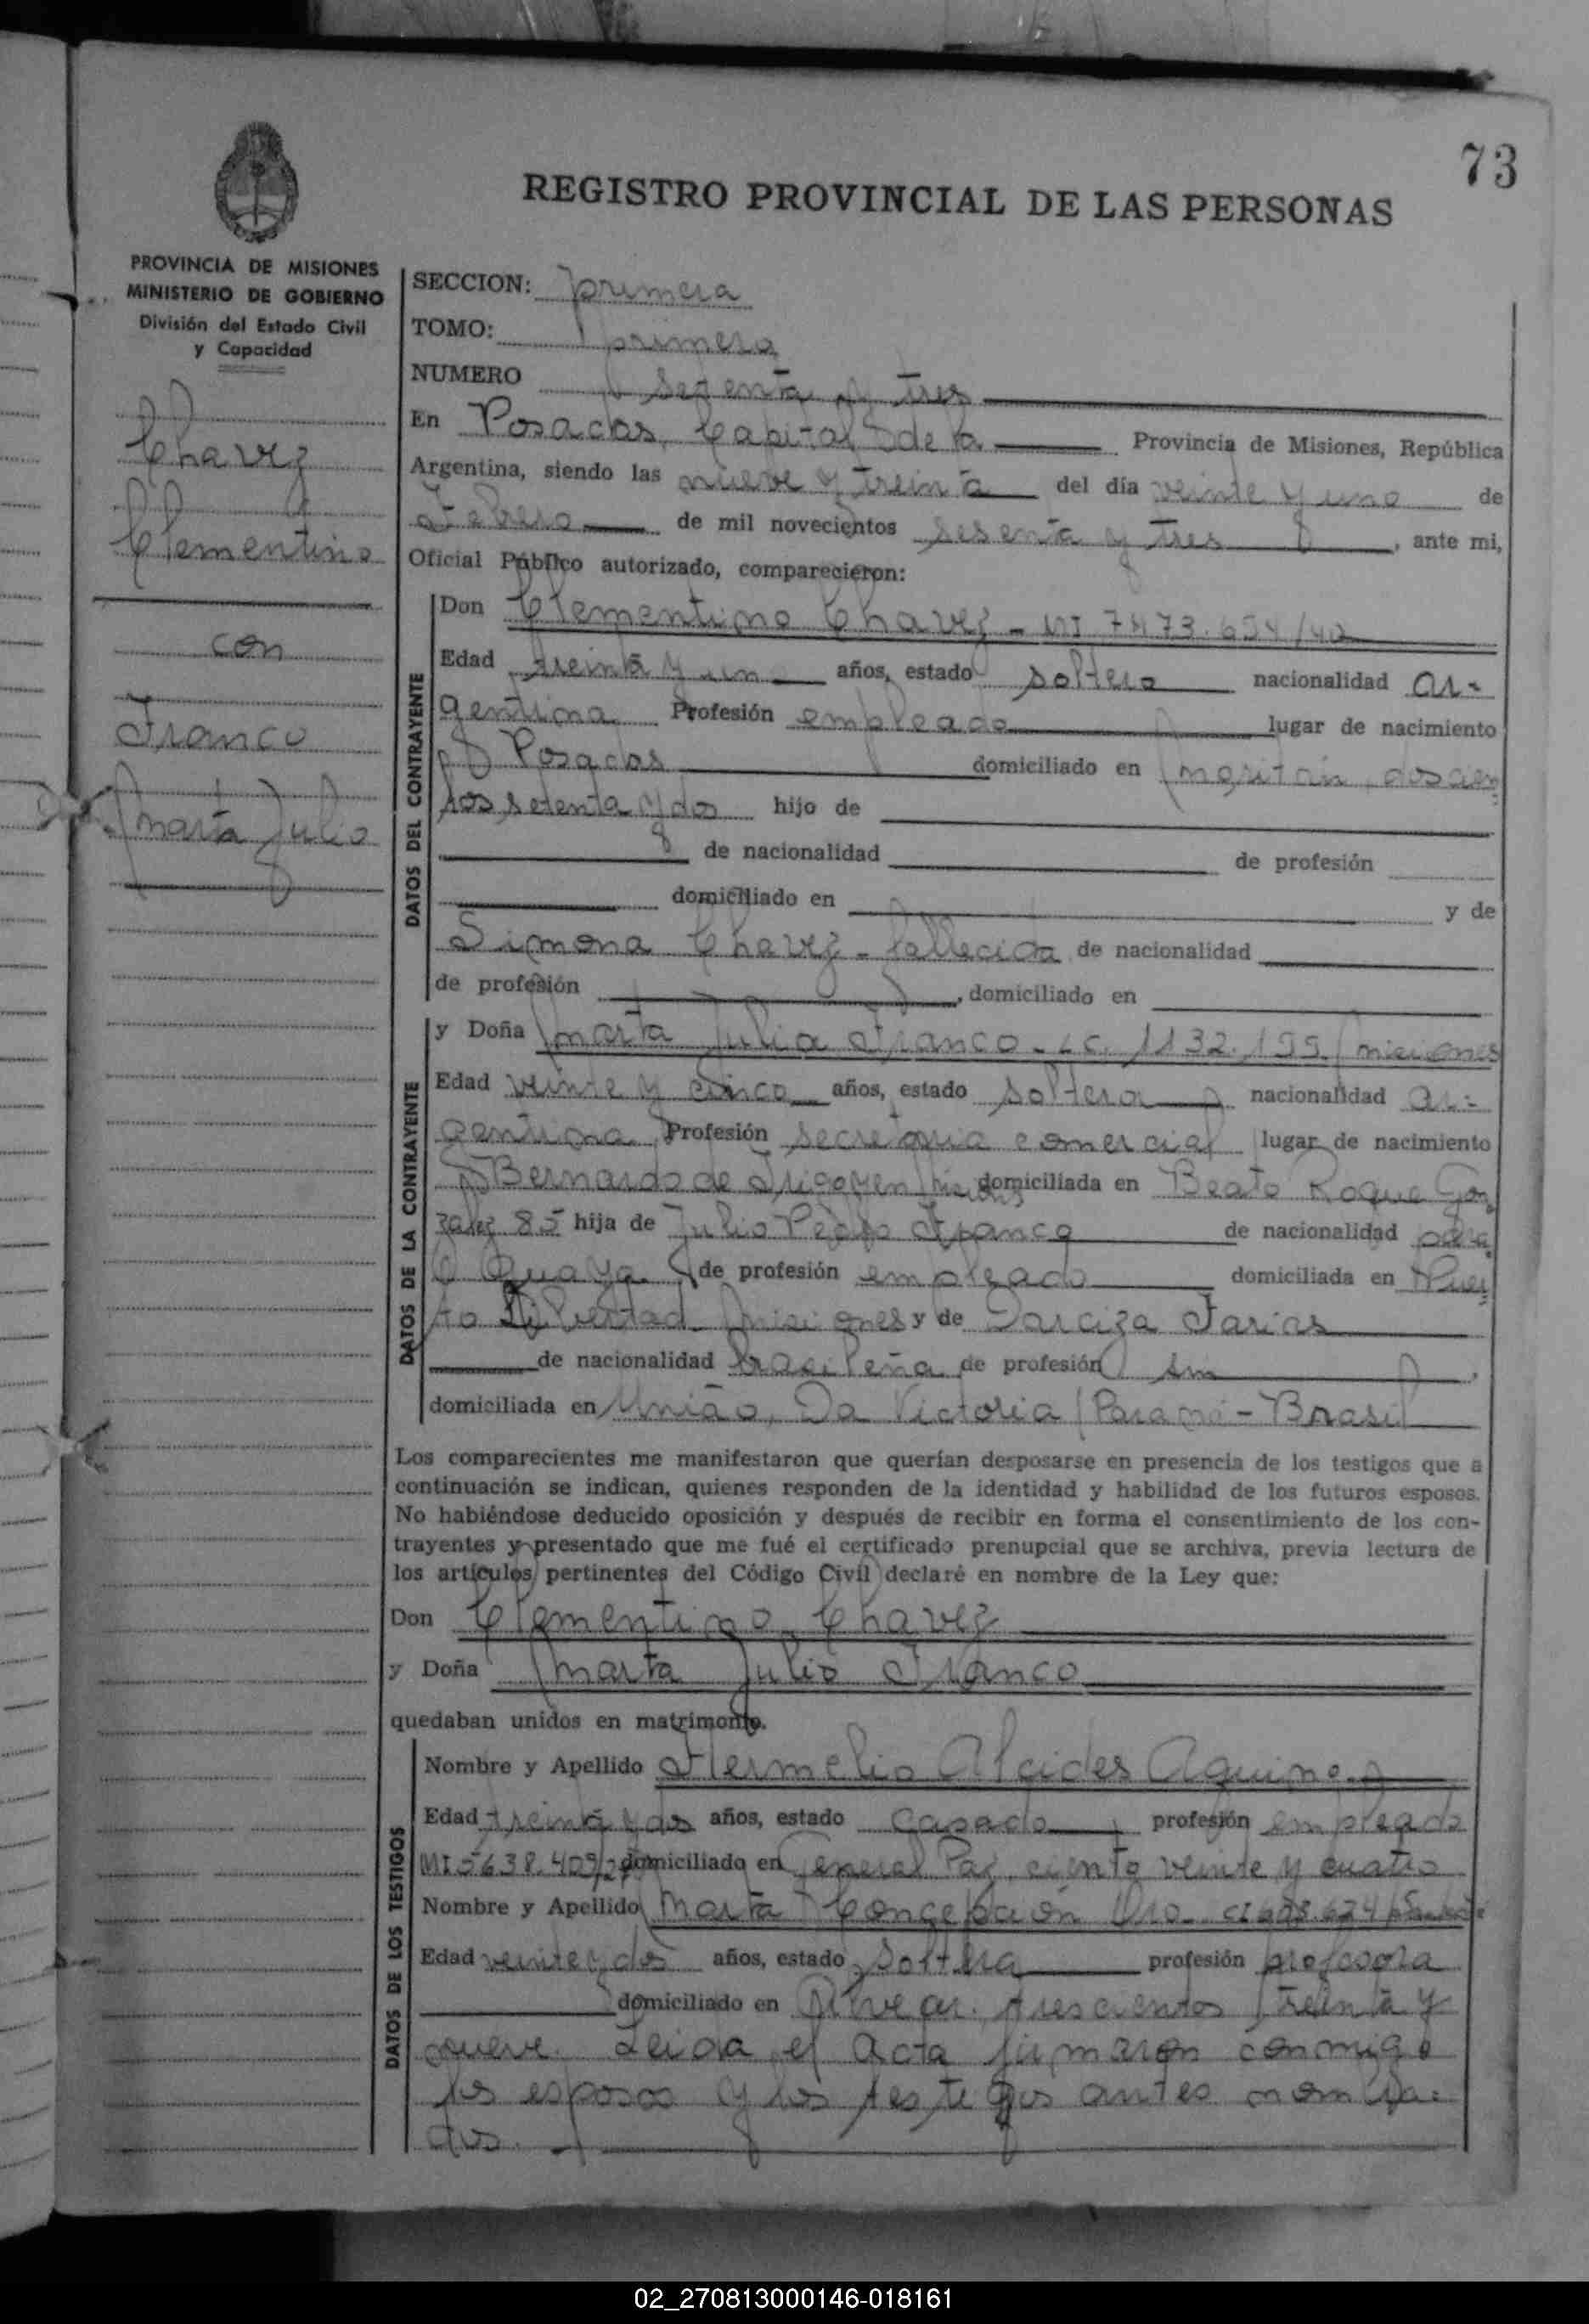 73
REGISTRO PROVINCIAL DE LAS PERSONAS
PROVINCIA DE MISIONES
MINISTERIO DE GOBIERNO
División del Estado Civil
y Capacidad
Chavez
Clementino
con
Franco
Marta Julia
SECCION: primera
TOMO: primero
NUMERO setenta y tres
En Posadas, Capital de la Provincia de Misiones, República
Argentina, siendo las nueve y treinta del día veinte y uno de
Febrero de mil novecientos sesenta y tres, ante mi,
Oficial Público autorizado, comparecieron:
DATOS DEL CONTRAYENTE
Don Clementino Chavez - MI 7473.654/40
Edad treinta y uno años, estado soltero nacionalidad ar-
gentina Profesión empleado lugar de nacimiento
Posadas domiciliado en doscien
tos setenta y dos hijo de
de nacionalidad de profesión
domiciliado en y de
Simona Chavez - fallecida de nacionalidad
de profesión , domiciliado en
DATOS DE LA CONTRAYENTE
y Doña Marta Julia Franco - LC. 1132.155 / Misiones
Edad veinte y cinco años, estado soltera nacionalidad ar-
gentina Profesión secretaria comercial lugar de nacimiento
Bernardo de Irigoyen Misiones domiciliada en Beato Roque Gon
zalez 85 hija de Julio Pedro Franco de nacionalidad para
guaya de profesión empleado domiciliada en Puer
to Libertad Misiones y de Darciza Farias
de nacionalidad brasileña de profesión sm
domiciliada en União, Da Victoria / Paraná - Brasil
Los comparecientes me manifestaron que querían desposarse en presencia de los testigos que a
continuación se indican, quienes responden de la identidad y habilidad de los futuros esposos.
No habiéndose deducido oposición y después de recibir en forma el consentimiento de los con-
trayentes y presentado que me fué el certificado prenupcial que se archiva, previa lectura de
los artículos pertinentes del Código Civil declaré en nombre de la Ley que:
Don Clementino Chavez
y Doña Marta Julia Franco
quedaban unidos en matrimonio.
DATOS DE LOS TESTIGOS
Nombre y Apellido Hermelio Alcides Aquino
Edad treinta y dos años, estado casado profesión empleado
MI 5638.409/ domiciliado en General Paz, ciento veinte y cuatro
Nombre y Apellido Marta Concepción
Edad veinte y dos años, estado soltera profesión profesora
domiciliado en trescientos treinta y
nueve. Leida el acta firmaron conmigo
los esposos y los testigos antes nombra-
dos.
02_270813000146-018161